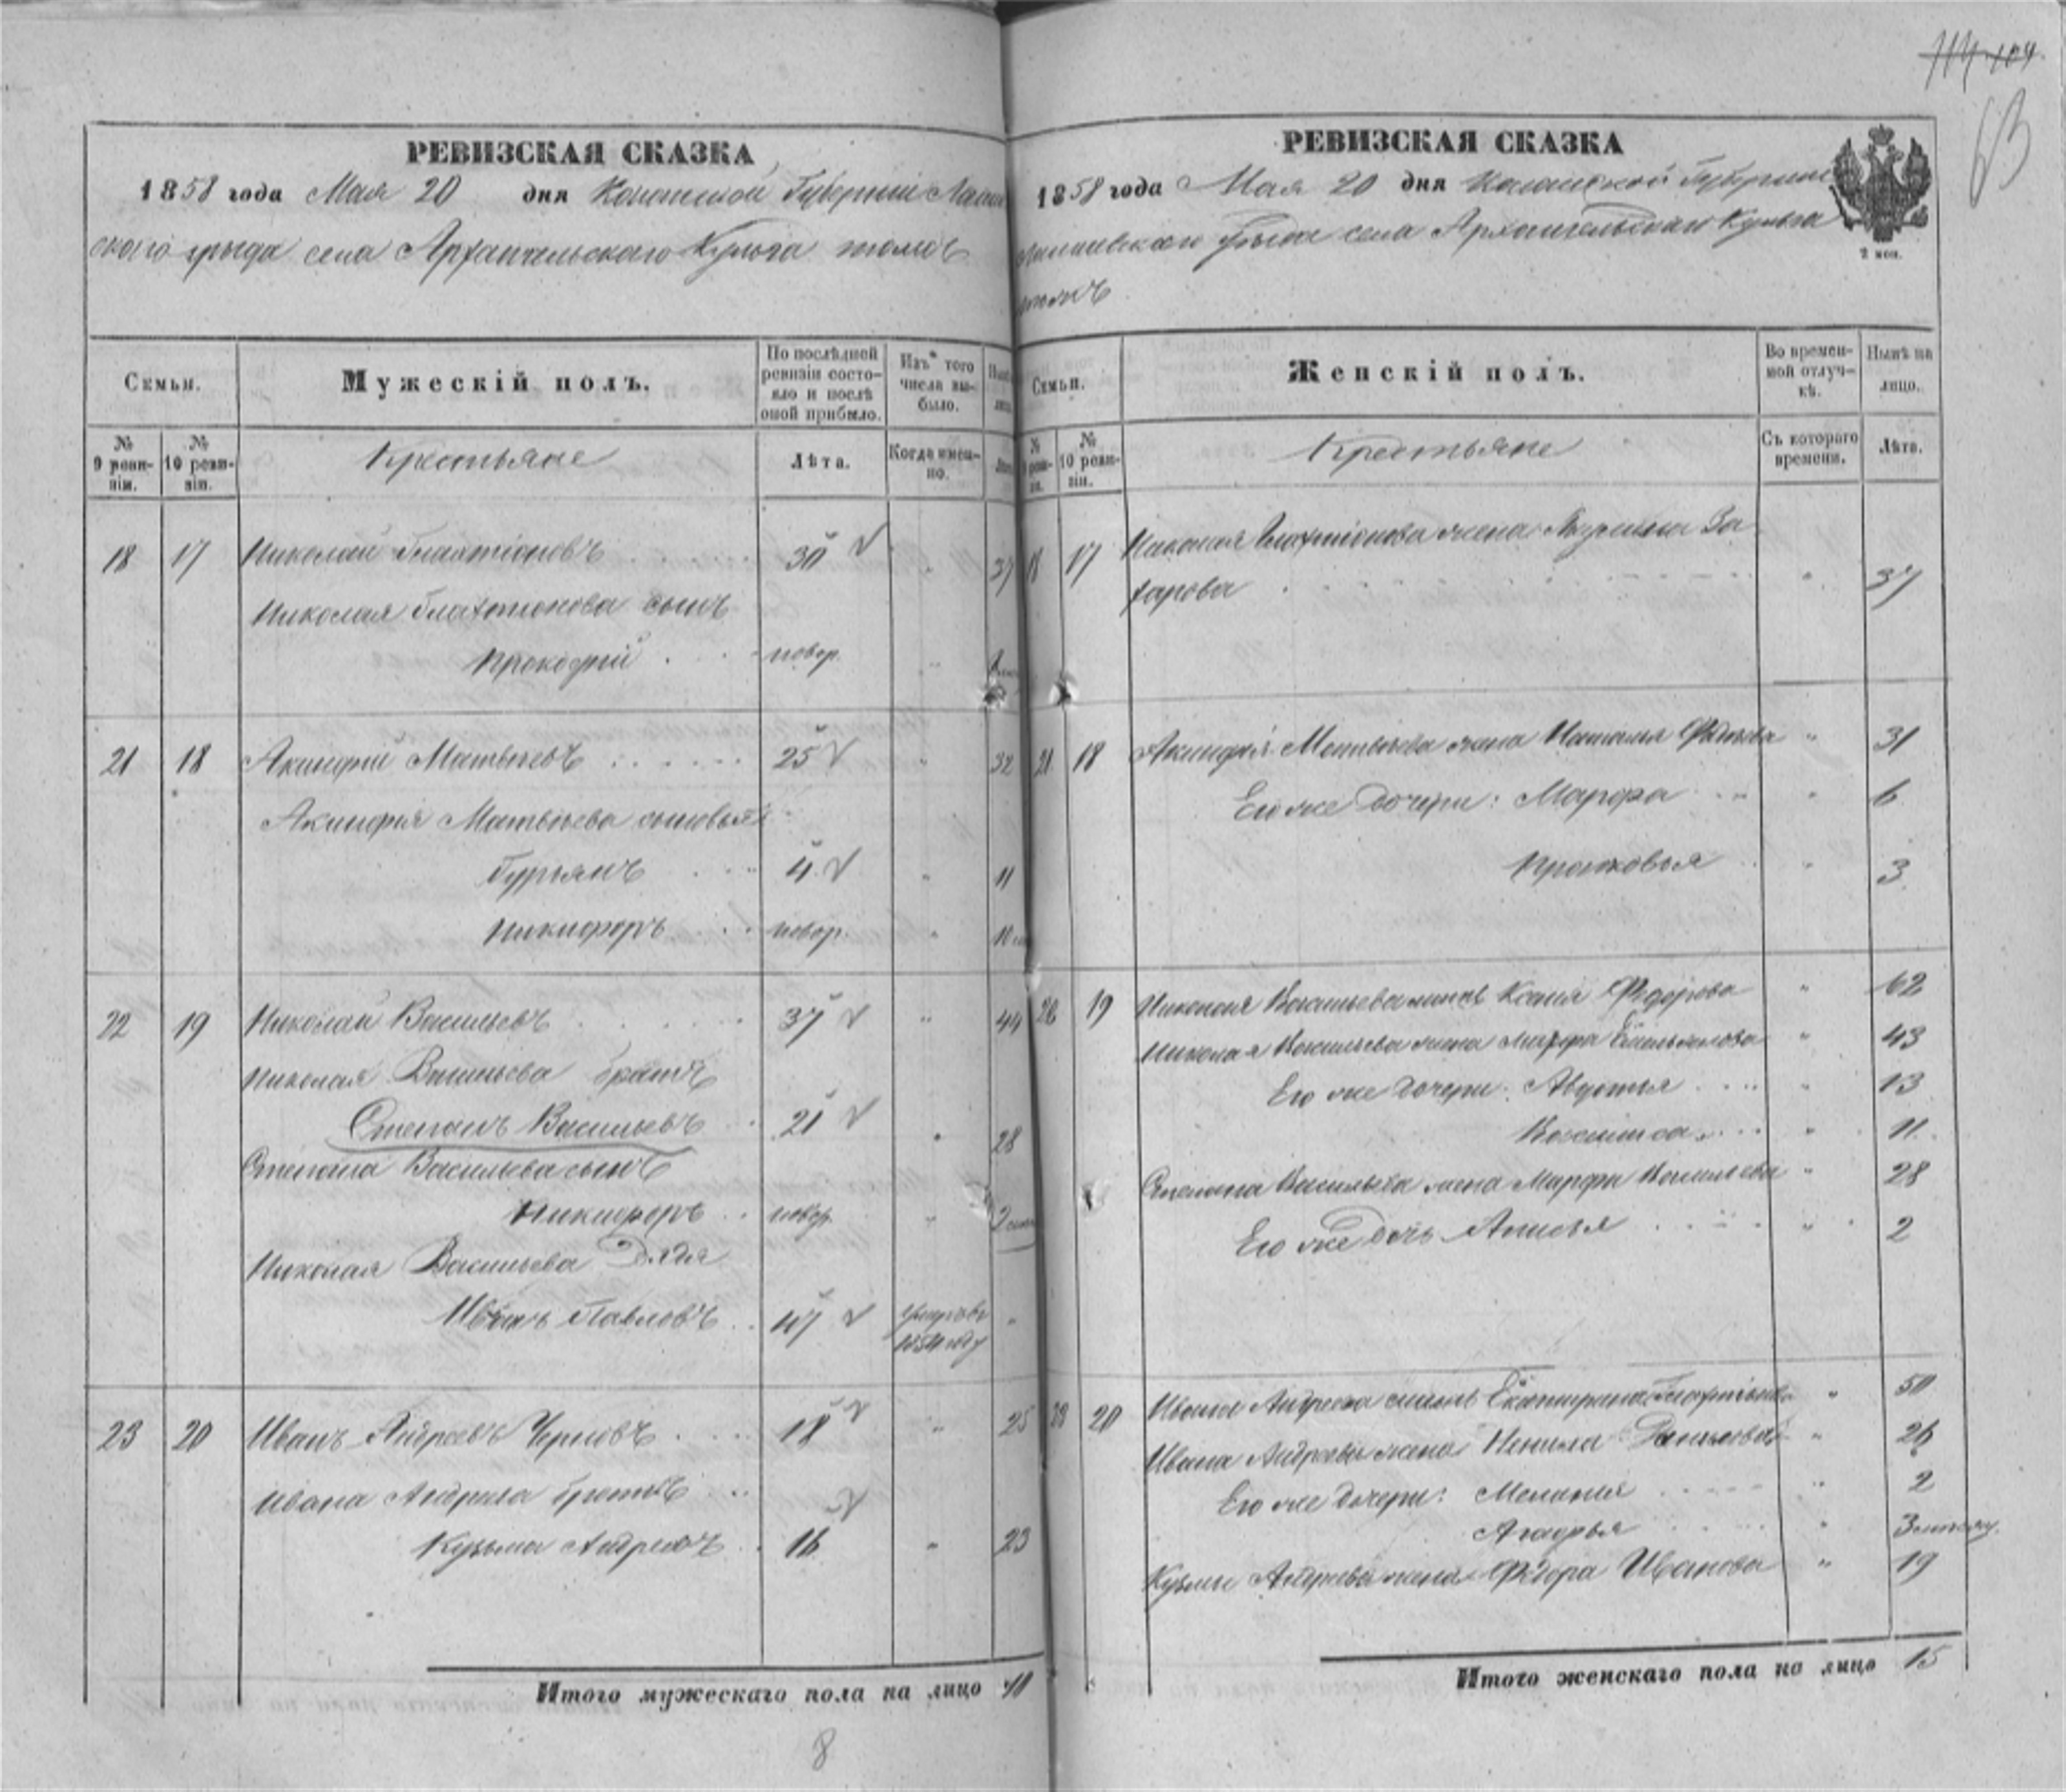 114 104
63
РЕВИЗСКАЯ СКАЗКА
1858 года Мая 20 дня Казанской Губерніи Лаишев
скаго уѣзда села Архангельскаго Кульга тожъ
Семьи.
Мужескій полъ.
По послѣдней ревизіи состояло и послѣ оной прибыло.
Изъ того числа выбыло.
№ 9 ревизіи.
№ 10 ревизіи.
Крестьяне
Лѣта.
Когда именно.
18 17 Николай Галахтіоновъ 30 37
Николая Галахтіонова сынъ
Прокофій новор.
21 18 Акинфій Матвѣевъ 25 32
Акинфія Матвѣева сыновья:
Гурьянъ 4 11
Никифоръ новор.
22 19 Николай Васильевъ 37 44
Николая Васильева братъ
Степанъ Васильевъ 21 28
Степана Васильева сынъ
Никифоръ новор. 2
Николая Васильева Дядя
Иванъ Павловъ 47 умръ въ 1854 году
23 20 Иванъ Андреевъ Черновъ 18 25
Ивана Андреева братъ
Кузьма Андреевъ 16 23
Итого мужескаго пола на лицо 10
8
РЕВИЗСКАЯ СКАЗКА
1858 года Мая 20 дня Казанской Губерніи
Лаишевскаго уѣзда села Архангельскаго Кульга
тожъ
2 коп.
Семьи.
Женскій полъ.
Во временной отлучкѣ.
Нынѣ на лицо.
№ 10 ревизіи.
Крестьяне
Съ котораго времени.
Лѣта.
18 17 Николая Галахтіонова жена Акулина За
харова " 37
21 18 Акинфія Матвѣева жена Наталья " 31
Его же дочери: Марфа " 6
Прасковья " 3
19 Николая Васильева мать Ксенія Федорова " 62
Николая Васильева жена Марфа Емельянова " 43
Его же дочери: Авдотья " 13
Василиса " 11
Степана Васильева жена Марфа Васильева " 28
Его же дочь Анисья " 2
23 20 Ивана Андреева мать Екатерина Галахтіонова " 50
Ивана Андреева жена Ненила " 26
Его же дочери: Меланія " 2
Агафья " 3
Кузьмы Андреева жена Федора Иванова " 19
Итого женскаго пола на лицо 15